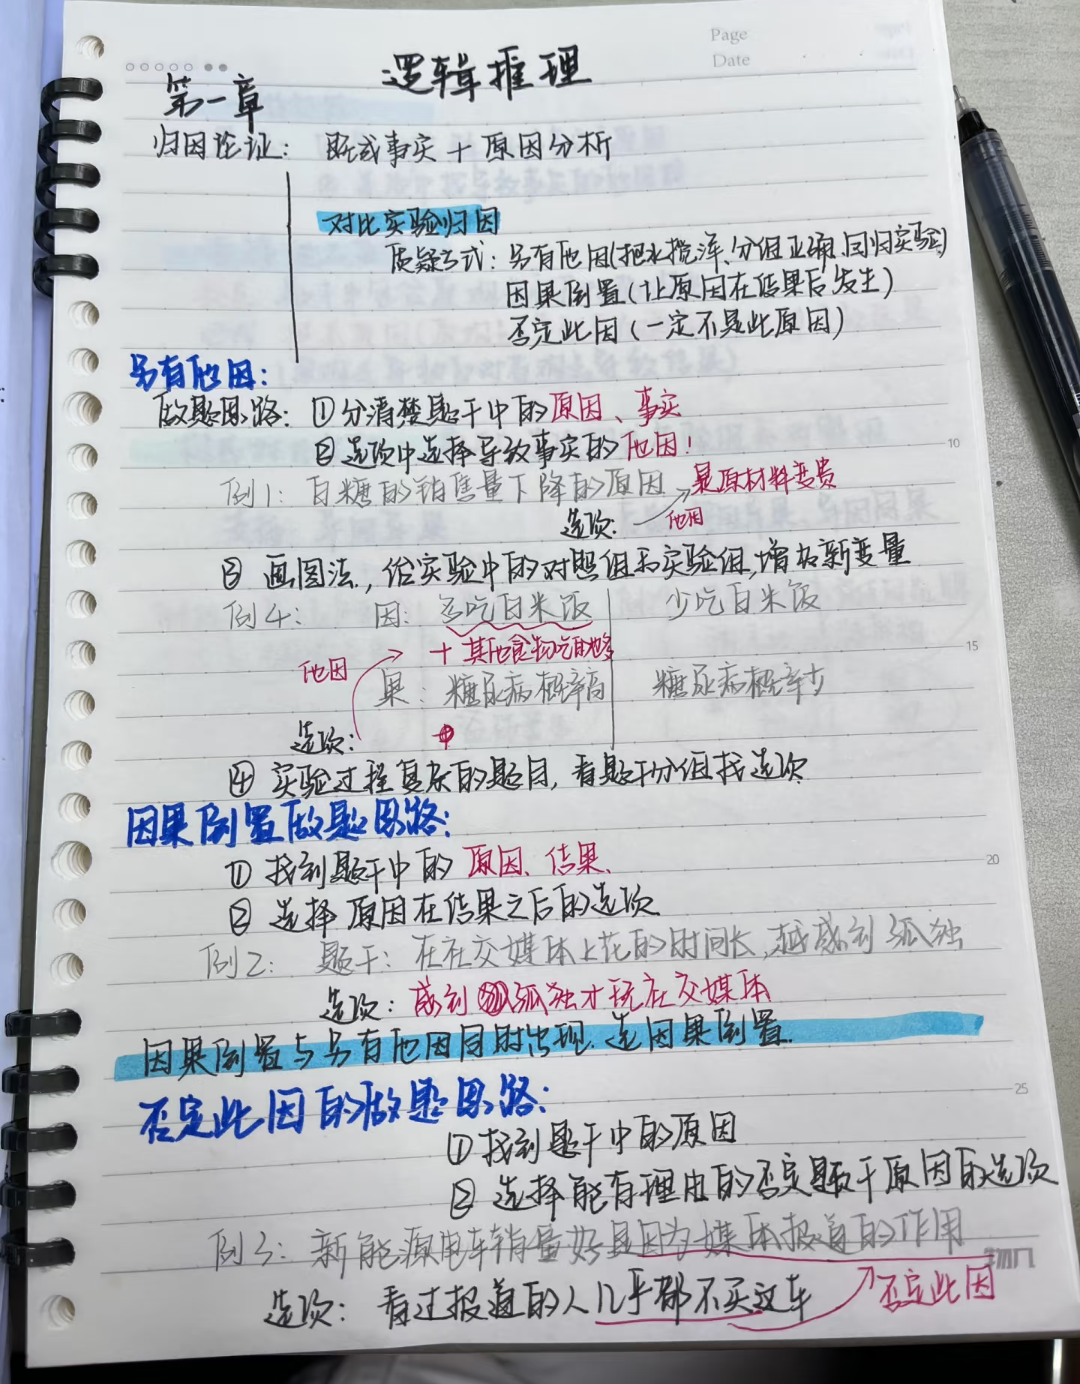 Page
Date
逻辑推理
第一章
归因论证： 既成事实 + 原因分析
对比实验归因
质疑方式：另有他因(把水搅浑、分组正确、回归实验)
因果倒置(让原因在结果后发生)
否定此因(一定不是此原因)
另有他因：
做题思路：①分清楚题干中的原因、事实
②选项中选择导致事实的他因！
例1：白糖的销售量下降的原因 是原材料变贵
选项： 他因
③ 画图法，给实验中的对照组和实验组，增加新变量
例4： 因：多吃白米饭 少吃白米饭
他因 + 其他食物吃的够多
果：糖尿病概率高 糖尿病概率少
选项：
④ 实验过程复杂的题目，看题干分组找选项
10
15
因果倒置做题思路：
① 找到题干中的原因、结果、
② 选择原因在结果之后的选项
20
例2： 题干：在社交媒体上花的时间长，越感到孤独
选项：感到孤独才玩社交媒体
因果倒置与另有他因同时出现、选因果倒置.
25
否定此因的做题思路：
①找到题干中的原因
② 选择能有理由的否定题干原因的选项
例3：新能源电车销量好是因为媒体报道的作用
选项： 看过报道的人几乎都不买这车 否定此因